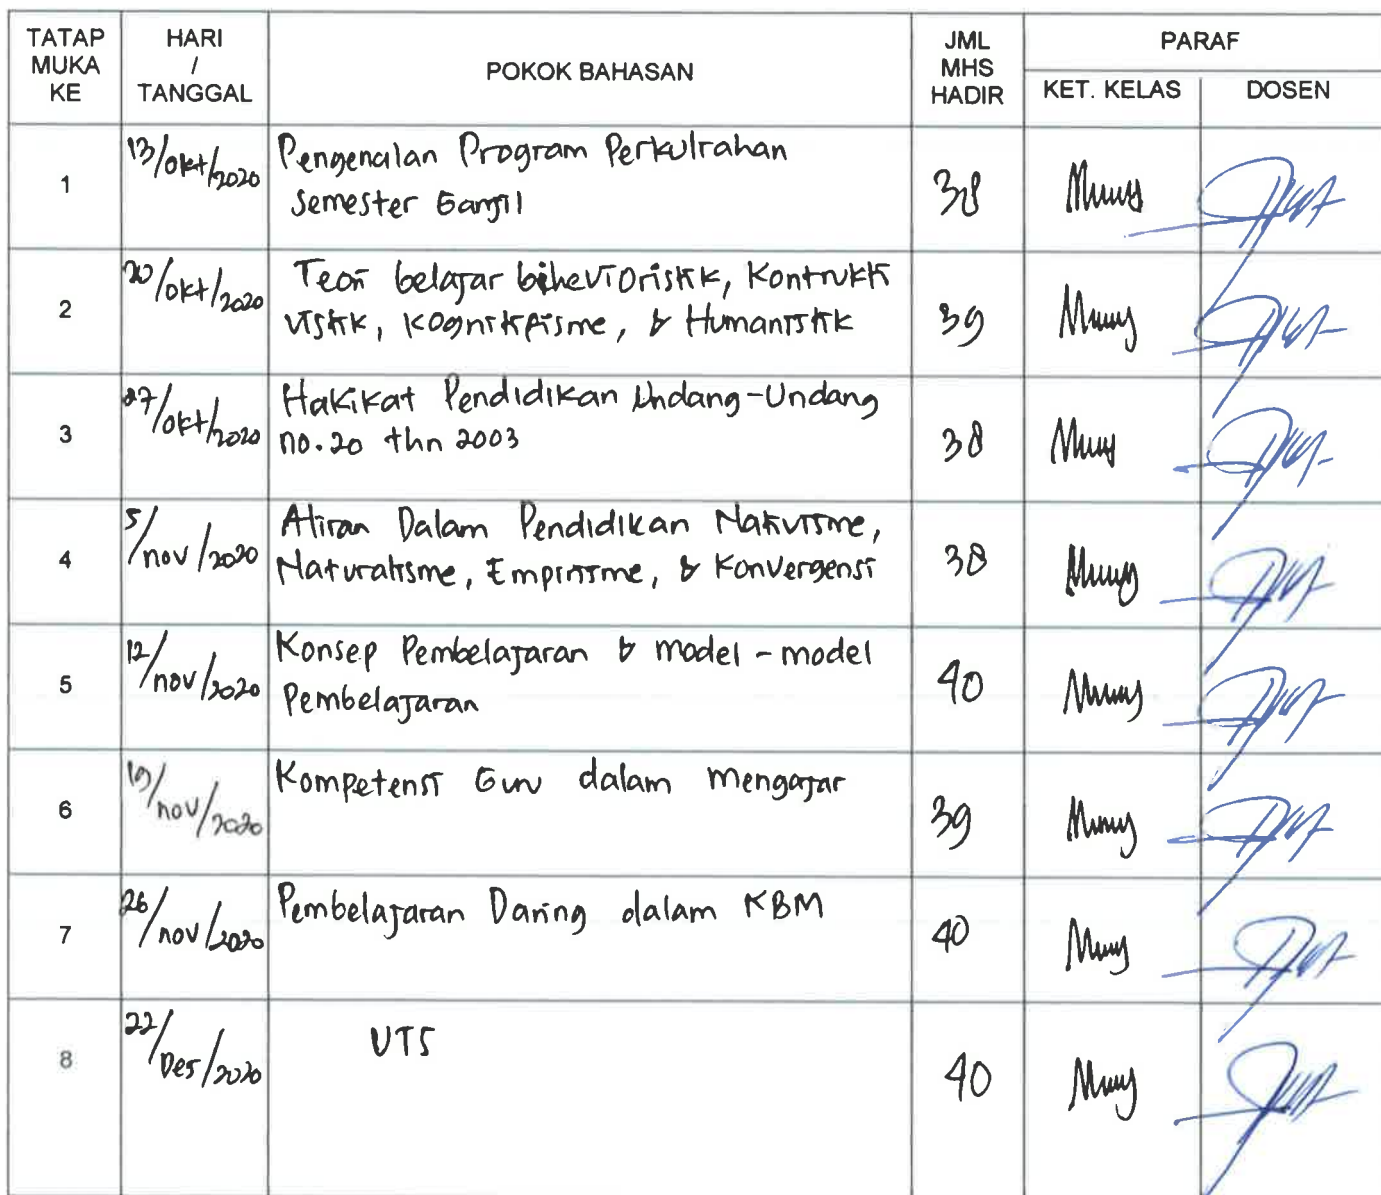 TATAP MUKA KE HARI / TANGGAL POKOK BAHASAN JML MHS HADIR PARAF
KET. KELAS DOSEN
1 13/okt/2020 Pengenalan Program Perkulrahan 38
Semester Ganjil
2 20/okt/2020 Teori belajar bihevioristik, Kontrukti 39
vistik, Kognitifisme, & Humanistik
3 27/okt/2020 Hakikat Pendidikan Undang-Undang 38
no.20 thn 2003
4 5/nov/2020 Aliran Dalam Pendidikan Nativisme, 38
Naturalisme, Empirisme, & Konvergensi
5 12/nov/2020 Konsep Pembelajaran & model - model 40
Pembelajaran
6 19/nov/2020 Kompetensi Guru dalam mengajar 39
7 26/nov/2020 Pembelajaran Daring dalam KBM 40
8 22/Des/2020 UTS 40